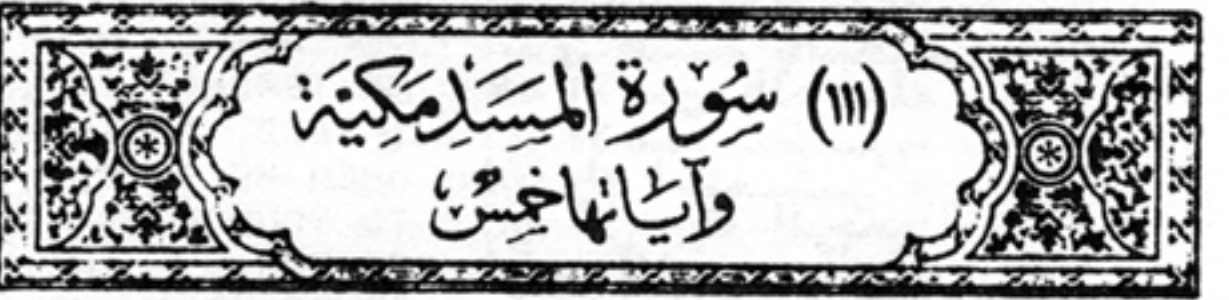 (١١١) سُورَة المسَدِ مَكيَّة
وَآيَاتهَا خمسٌ